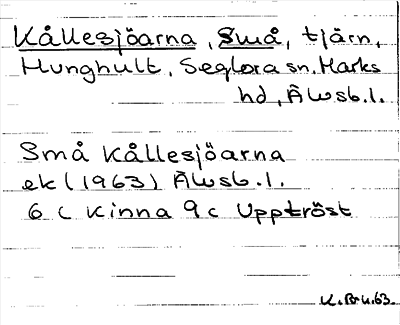 Kållesjöarna, Små, tjärn,
Hunghult, Seglora sn. Marks
hd, Älvsb.l.
Små Kållesjöarna
ek (1963) Älvsb.l.
6 c Kinna 9 c Uppträst
K.Br.u.63.